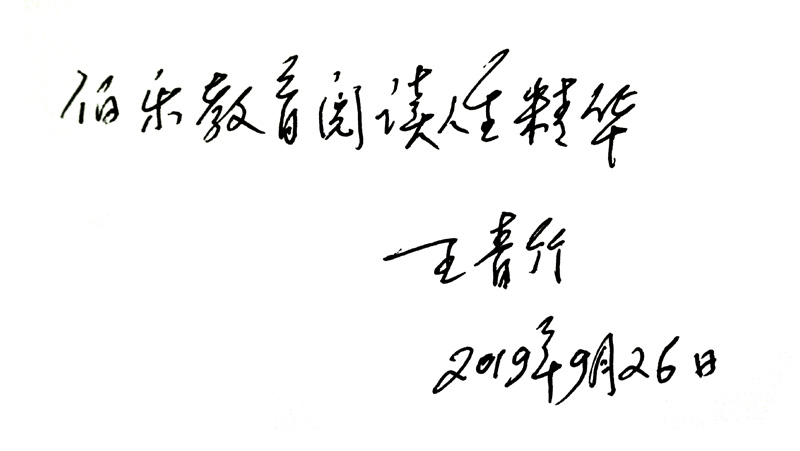 伯乐教育阅读人生精华
王晋竹
2019年9月26日